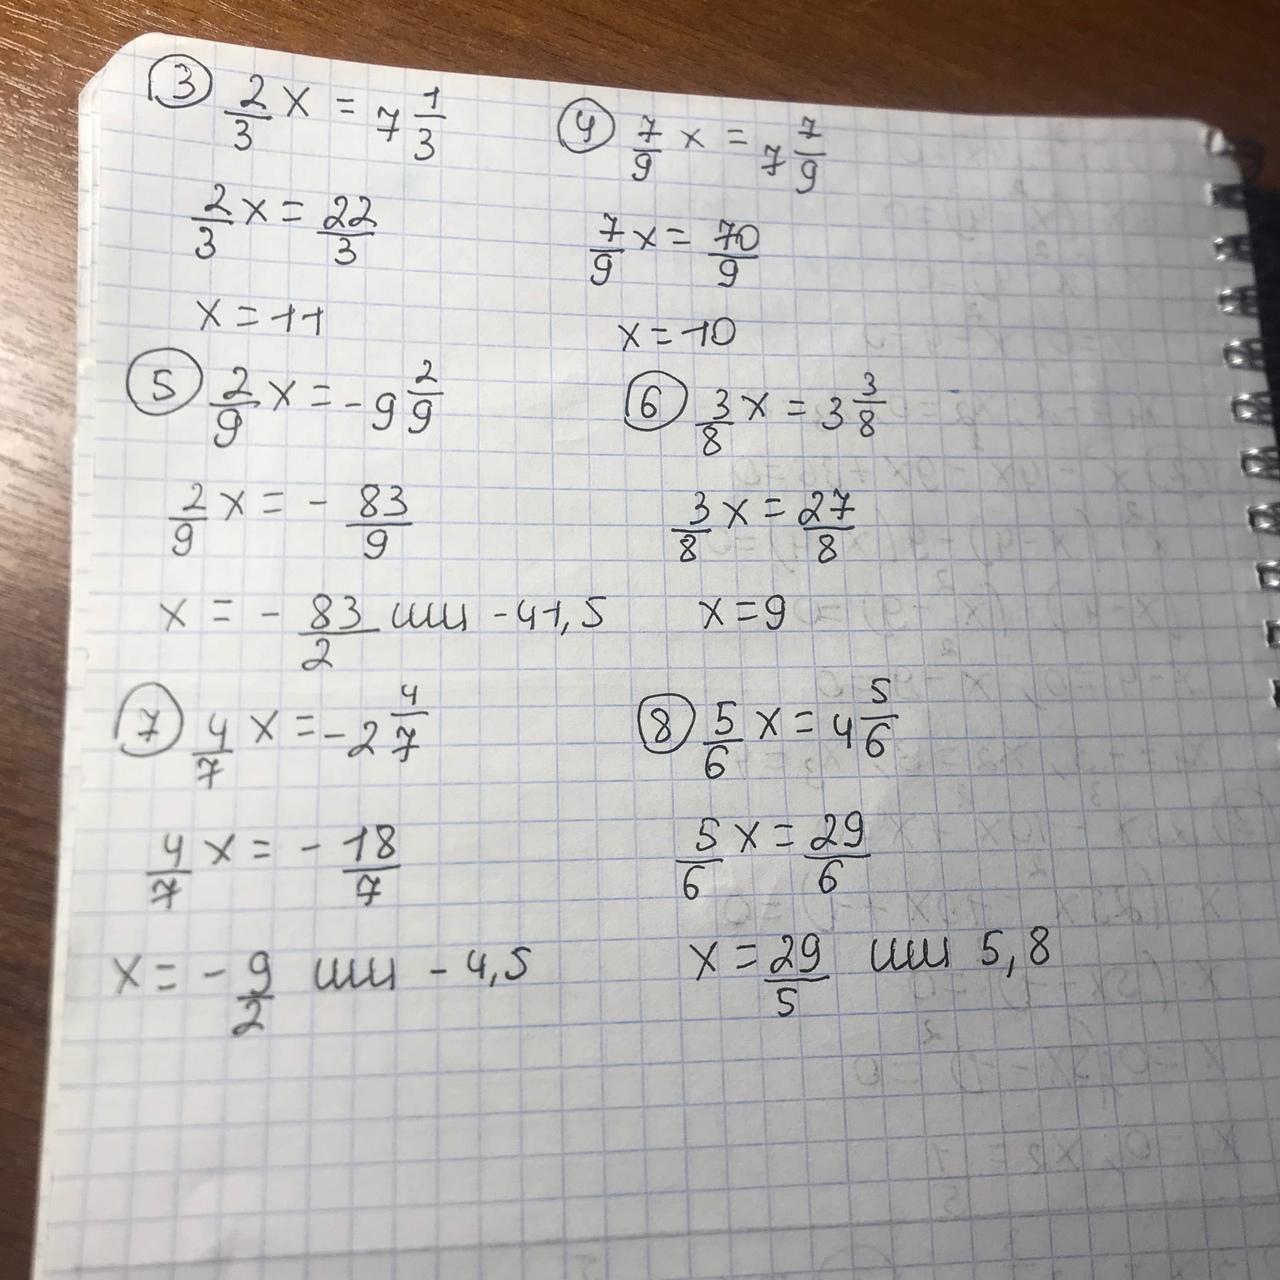 ③ 2/3 x = 7 1/3
2/3 x = 22/3
x = 11
④ 7/9 x = 7 7/9
7/9 x = 70/9
x = 10
⑤ 2/9 x = - 9 2/9
2/9 x = - 83/9
x = - 83/2 или - 41,5
⑥ 3/8 x = 3 3/8
3/8 x = 27/8
x = 9
⑦ 4/7 x = - 2 4/7
4/7 x = - 18/7
x = - 9/2 или - 4,5
⑧ 5/6 x = 4 5/6
5/6 x = 29/6
x = 29/5 или 5,8